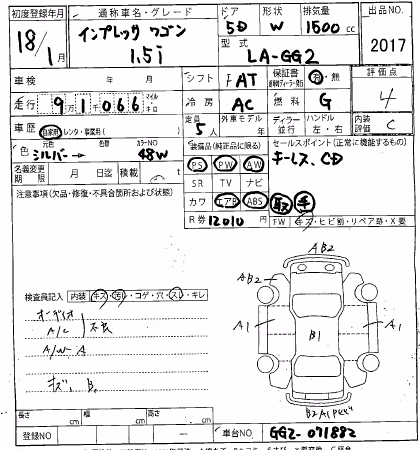 初度登録年月 通称車名・グレード ドア 形状 排気量 出品NO.
18/1月 インプレッサ ワゴン 5D W 1500cc
1.5i 型式 LA-GG2 2017
車検 年 月 シフト FAT 保証書 有・無 評価点
走行 91066 マイル キロ 冷房 AC 燃料 G 4
車歴 自家用・レンタ・事業用( ) 定員 5人 外車モデル 年 ディーラー 並行 ハンドル 左・右 内装評価 C
色 元色 シルバー→ 色替 カラーNO 48W
装備品(純正品に限る) セールスポイント(正常に機能するもの)
名義変更期限 月 日迄 積載 t
PS PW AW キーレス、CD
注意事項(欠品・修復・不具合箇所および状態)
SR TV ナビ
カワ エアB ABS 取 手
R券 12010 FW キズ・ヒビ割・リペア跡・X要
検査員記入 内装 キズ・汚・コゲ・穴・スレ・キレ
オーディオ
A/C 不良
A/W A
キズ、B。
AB2
AB2
A1 B1 A1
B2A1
長さ cm 幅 cm 高さ cm
登録NO 車台NO. GG2-071882